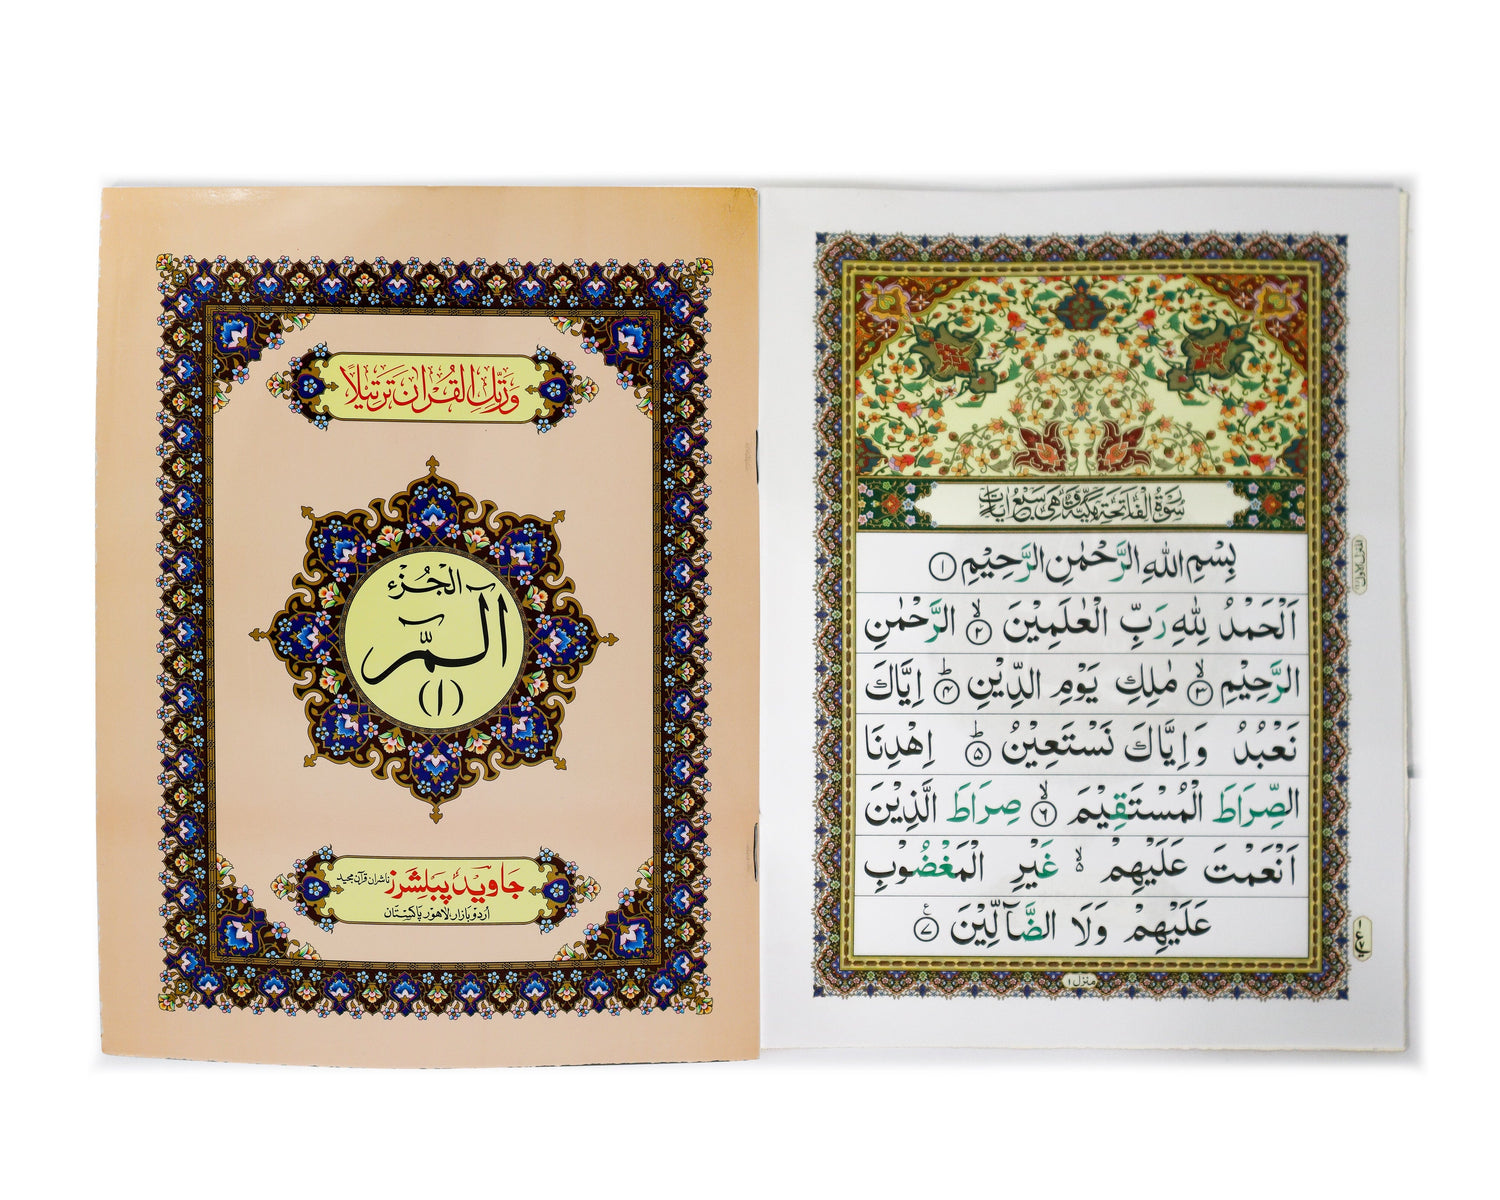 وَرَتِّلِ الْقُرْاٰنَ تَرْتِيْلًا
الْجُزْء
الٓمّٓ
(۱)
جاوید پبلشرز ناشران قرآن مجید
اُردو بازار، لاہور پاکستان
سُوْرَةُ الْفَاتِحَةِ مَكِّيَّةٌ وَّهِىَ سَبْعُ اٰيَاتٍ
بِسْمِ اللهِ الرَّحْمٰنِ الرَّحِيْمِ ۱
اَلْحَمْدُ لِلّٰهِ رَبِّ الْعٰلَمِيْنَ ۙ ۲ الرَّحْمٰنِ
الرَّحِيْمِ ۙ ۳ مٰلِكِ يَوْمِ الدِّيْنِ ؕ ۴ اِيَّاكَ
نَعْبُدُ وَاِيَّاكَ نَسْتَعِيْنُ ؕ ۵ اِهْدِنَا
الصِّرَاطَ الْمُسْتَقِيْمَ ۙ ۶ صِرَاطَ الَّذِيْنَ
اَنْعَمْتَ عَلَيْهِمْ ۙ۵ غَيْرِ الْمَغْضُوْبِ
عَلَيْهِمْ وَلَا الضَّآلِّيْنَ ۷ ع
منزل ۱